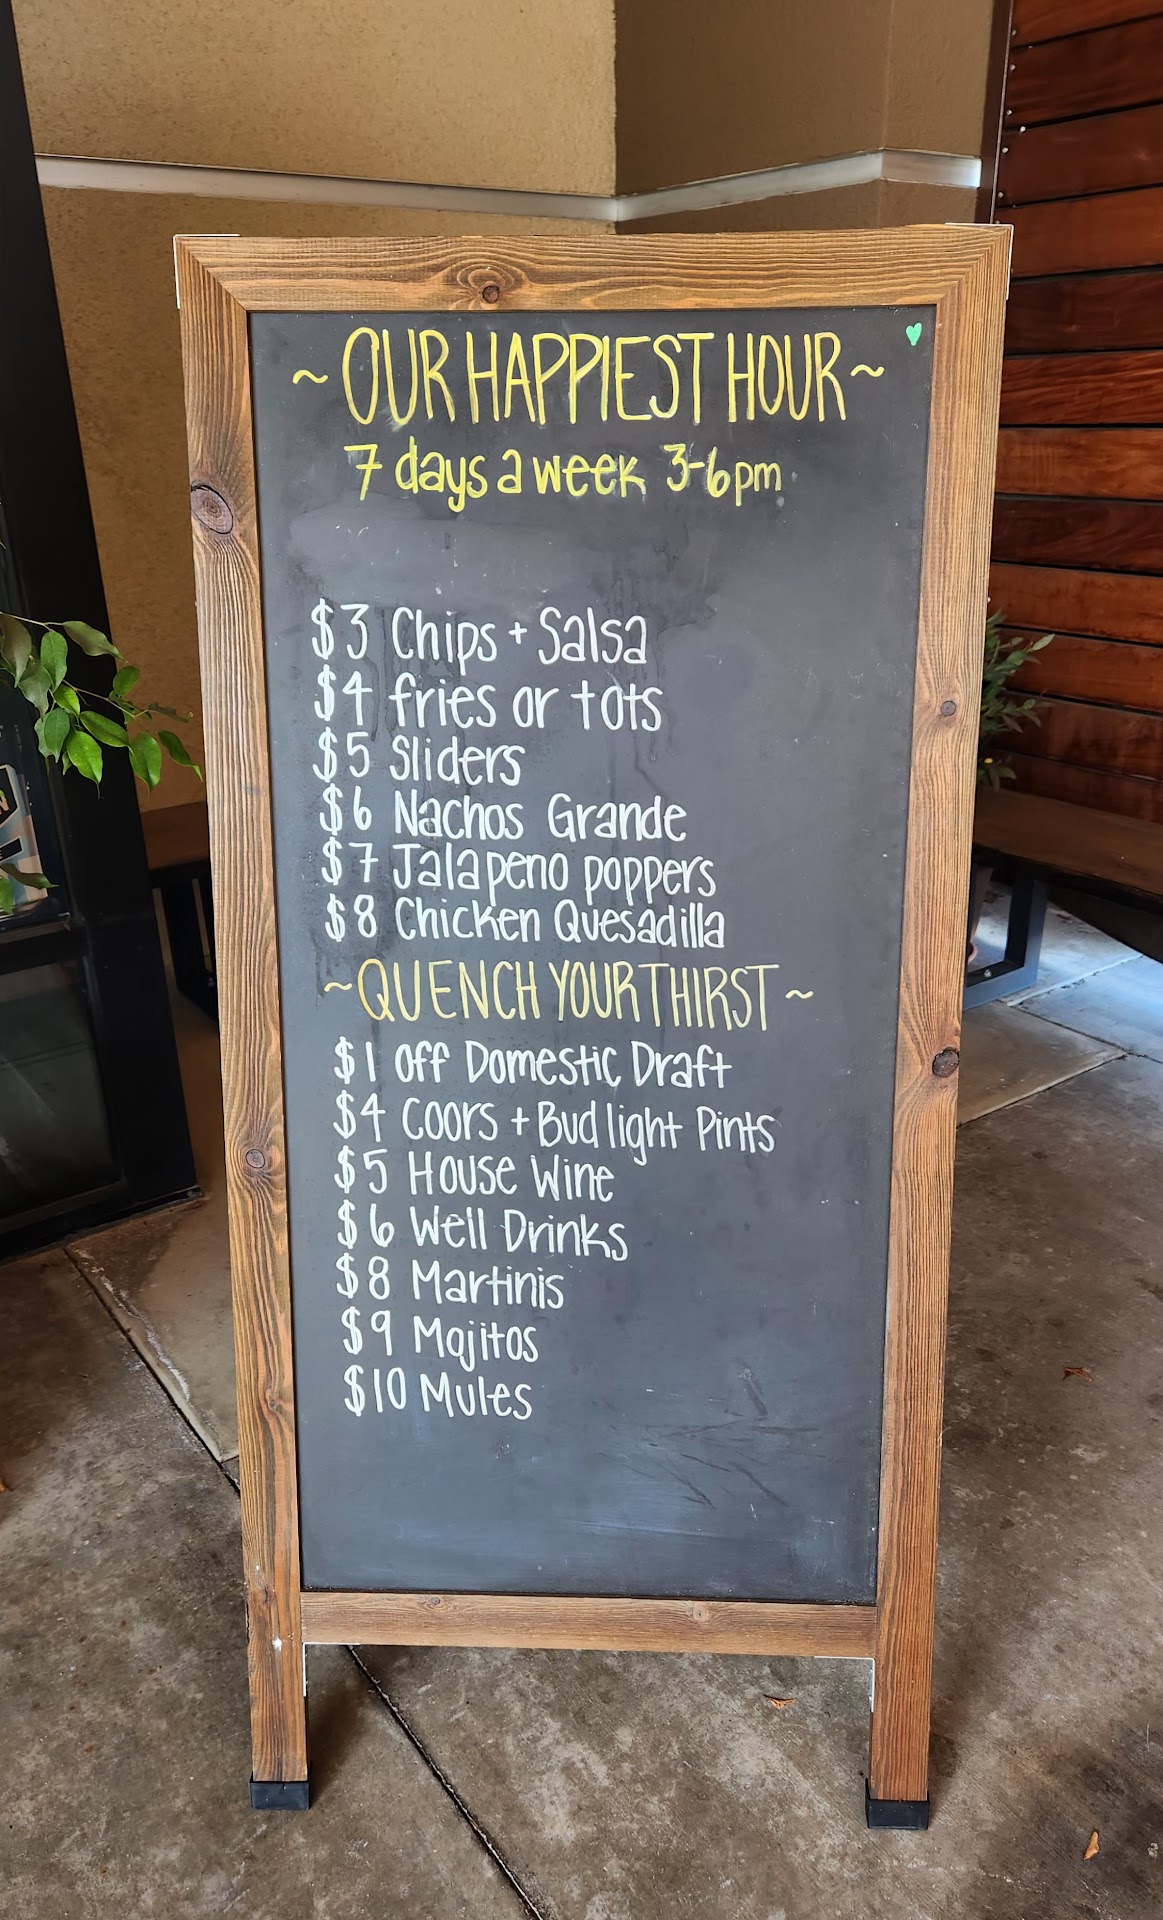 ~ OUR HAPPIEST HOUR ~
7 days a week 3-6pm
$3 Chips + Salsa
$4 fries or tots
$5 Sliders
$6 Nachos Grande
$7 Jalapeno poppers
$8 Chicken Quesadilla
~ QUENCH YOUR THIRST ~
$1 Off Domestic Draft
$4 Coors + Bud light Pints
$5 House Wine
$6 Well Drinks
$8 Martinis
$9 Mojitos
$10 Mules